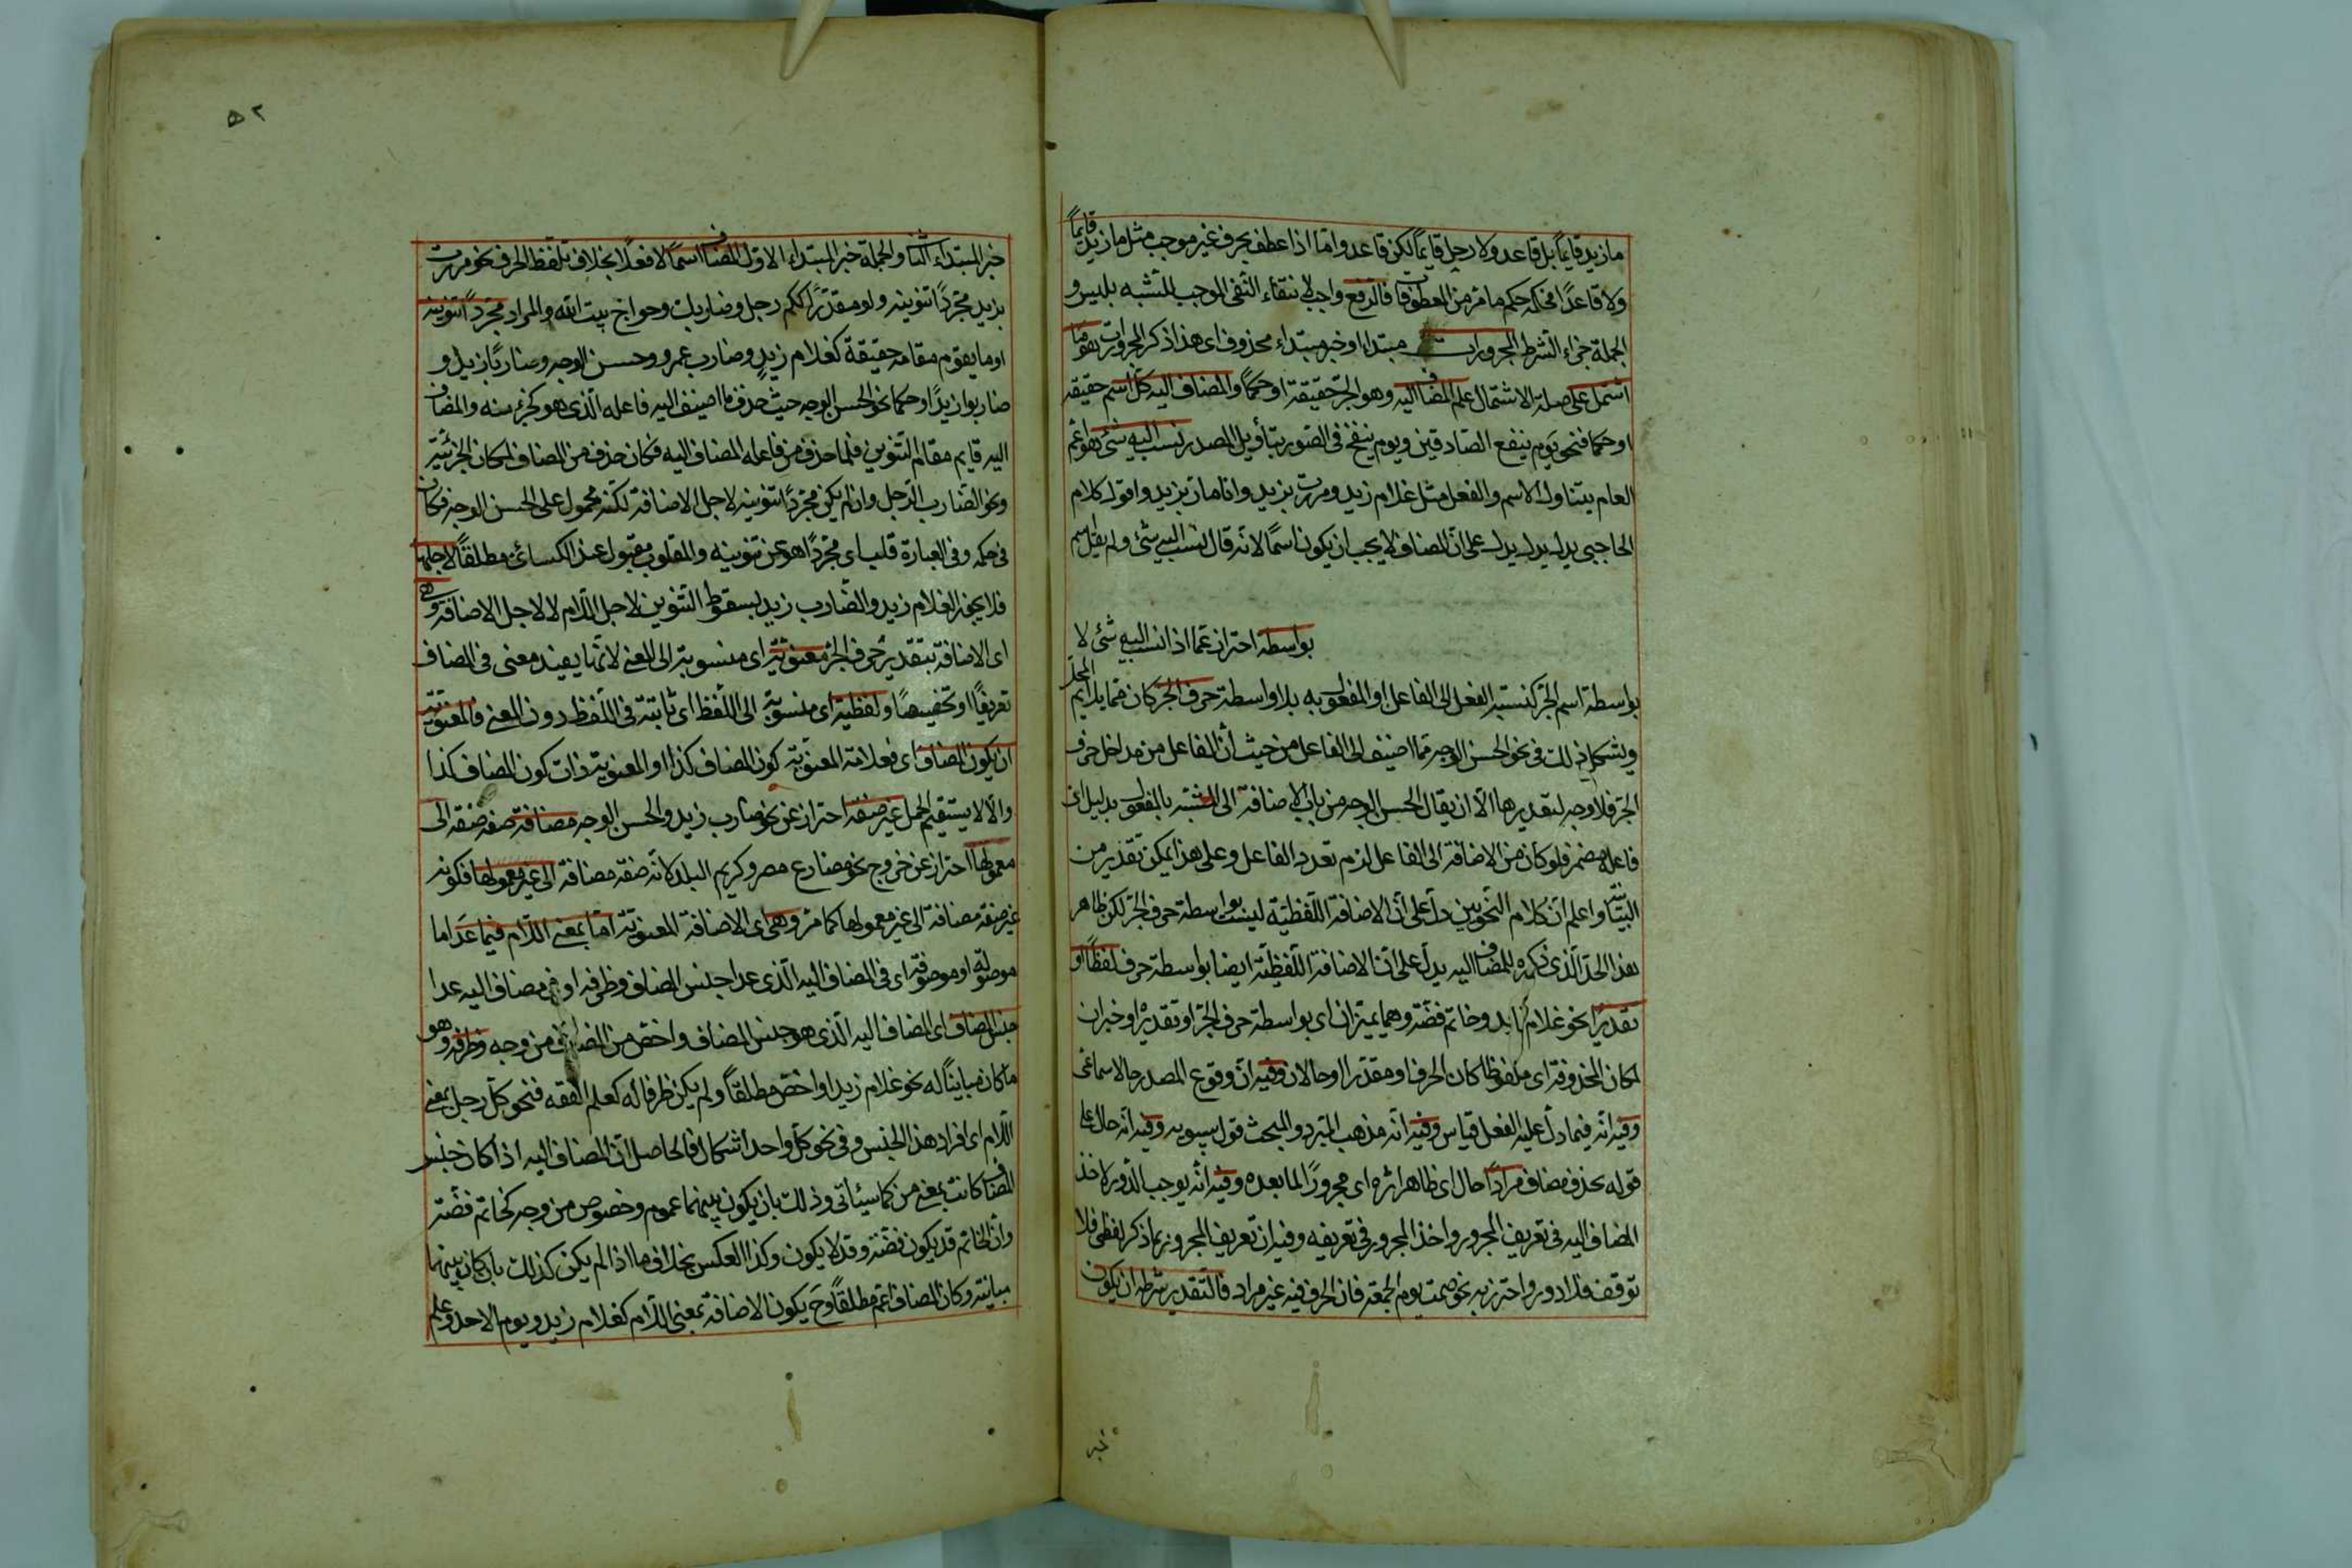 ما زيد قايماً بل قاعد ولا رجل قايماً لكن قاعد واما اذا عطف بحرف غير موجب مثل ما زيد قايماً
ولا قاعداً فحكمه حكم ما مر من المعطوفات فالرفع واجب لانتقاء النفى الموجب للشبه بليس و
الجملة جزاء الشرط المجرورات مبتداء او خبر مبتداء محذوف اى هذا ذكر المجرورات هو ما
اشتمل على صلة الاشتمال علم المضاف اليه وهو الجر حقيقة او حكماً والمضاف اليه كل اسم حقيقة
او حكما فنحو يوم ينفع الصادقين ويوم ينفخ فى الصور بتأويل المصدر نسب اليه شئ هو اعم
العام يتناول الاسم والفعل مثل غلام زيد ومررت بزيد وانا مار بزيد واقول كلام
الحاجبى يدل يدل يدل على ان المضاف لا يجب ان يكون اسماً لانه قال نسب اليه شئ ولم يقل اسم
بواسطة احتراز عما اذا نسب اليه شئ لا
بواسطة اسم الجر كنسبة الفعل الى الفاعل او المفعول به بلا واسطة حرف الجر كان مما يلايم المحل
ويشكل ذلك فى نحو الحسن الوجه مما اضيف الى الفاعل من حيث ان الفاعل من مداخل حرف
الجر فلا وجه لتقديرها الا ان يقال الحسن الوجه من باب الاضافة الى المشبه بالمفعول بدليل ان
فاعله مضمر فلو كان من الاضافة الى الفاعل لزم تعدد الفاعل وعلى هذا يمكن تقدير من
البيانية واعلم ان كلام النحويين دل على ان الاضافة اللفظية ليست بواسطة حرف الجر لكن ظاهر
هذا الحد الذى ذكره للمضاف اليه يدل على ان الاضافة اللفظية ايضا بواسطة حرف لفظاً او
تقديراً نحو غلام زيد وخاتم فضة وهما يميزان اى بواسطة حرف الجر او تقديره او خبران
لكان المحذوفة اى ملفوظا كان الحرف او مقدرا او حالان وفيه ان وقوع المصدر حالا سماعى
وفيه انه فيما دل عليه الفعل قياس وفيه انه مذهب المبرد والمبحث قول سيبويه وفيه انه حال على
قوله بحذف مضاف مراداً حال اى ظاهرا اثره اى مجروراً لما بعده وفيه انه يوجب الدور لاخذ
المضاف اليه فى تعريف المجرور واخذ المجرور فى تعريفه وفيه ان تعريف المجرور بما ذكر لفظى فلا
توقف فلا دور واحترز به نحو صمت يوم الجمعة فان الحرف فيه غير مراد فالتقدير شرطه ان يكون
خبر
٥٢
خبر المبتداء الثانى والجملة خبر المبتداء الاول المضاف اسماً لا فعلاً بخلاف تلفظ الحرف نحو مررت
بزيد مجرداً تنوينه ولو مقدراً ككم رجل وضاربات وحواج بيت الله والمراد مجرداً تنوينه
او ما يقوم مقامه حقيقة كغلام زيد وضارب عمرو وحسن الوجه وضاربا زيد و
ضاربوا زيد او حكما نحو الحسن الوجه حيث حذف ما اضيف اليه فاعله الذى هو كجزء منه والمضاف
اليه قايم مقام التنوين فلما حذف من فاعله المضاف اليه فكان حذف من المضاف لمكان الجزئية
ونحو الضارب الرجل وان لم يكن مجرداً تنوينه لاجل الاضافة لكنه محمول على الحسن الوجه فكان
فى حكمه وفى العبارة قلب اى مجرداً هو عن تنوينه والمقلوب مقبول عند الكسائى مطلقاً لاجلها
فلا يجوز الغلام زيد والضارب زيد بسقوط التنوين لاجل اللام لا لاجل الاضافة وهى
اى الاضافة بتقدير حرف الجر معنوية اى منسوبة الى المعنى لانها يفيد معنى فى المضاف
تعريفاً او تخصيصاً ولفظية اى منسوبة الى اللفظ اى ثابتة فى اللفظ دون المعنى فالمعنوية
ان يكون المضاف اى فعلامة المعنوية كون المضاف كذا او المعنوية ذات كون المضاف كذا
والا لا يستقيم الحمل غير صفة احتراز عن نحو ضارب زيد والحسن الوجه مضافة صفة صفة الى
معمولها احتراز عن خروج نحو مضارع مصر وكريم البلد لانه صفة مضافة الى غير معمولها فكونه
غير صفة مضافة الى غير معمولها كما مر وهى اى الاضافة المعنوية اما بمعنى اللام فيما عدا ما
موصولة او موصوفة اى فى المضاف اليه الذى عدا جنس المضاف وظرفه او فى مضاف اليه عدا
جنس المضاف اى المضاف اليه الذى هو جنس المضاف واخص من المضاف من وجه وظرفه وهو
ما كان مبايناً له نحو غلام زيد او اخص مطلقاً ولم يكن ظرفا له كعلم الفقه فنحو كل رجل بمعنى
اللام اى افراد هذا الجنس وفى نحو كل واحد اشكال فالحاصل ان المضاف اليه اذا كان جنس
المضاف كانت بمعنى من كما سيأتى وذلك بان يكون بينهما عموم وخصوص من وجه كخاتم فضة
وان الخاتم قد يكون فضة وقد لا يكون وكذا العكس بخلاف ما اذا لم يكن كذلك بان كان بينهما
مباينة وكان المضاف اعم مطلقاً وح يكون الاضافة بمعنى اللام كغلام زيد ويوم الاحد وعلم